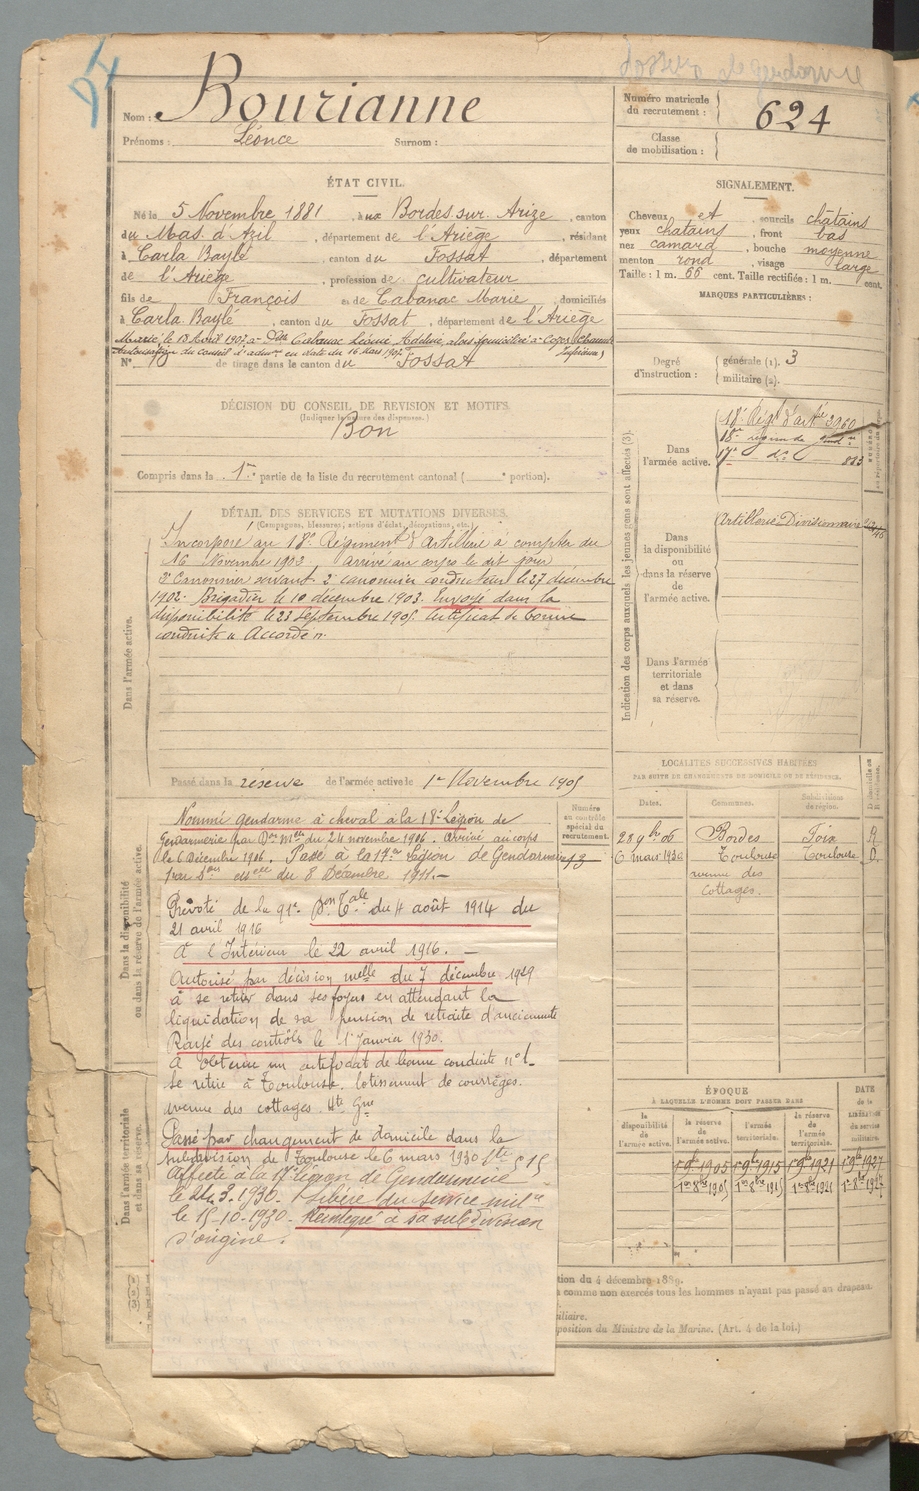 Nom : Bourianne
Prénoms : Léonce Surnom :
Numéro matricule du recrutement : 624
Classe de mobilisation :
ÉTAT CIVIL.
Né le 5 Novembre 1881, à aux Bordes. sur. Arize, canton
du Mas. d'Azil, département de l'Ariège, résidant
à Carla Baylé, canton du Fossat, département
de l'Ariège, profession de cultivateur
fils de François et de Cabanac Marie, domiciliés
à Carla. Baylé, canton du Fossat, département de l'Ariège
Marié le 13 Avril 1907 à Dlle Cabanac Léonie Adeline, alors domiciliée à
Autorisation du conseil d'admon en date du 16 Mars 1907
N° de tirage dans le canton du Fossat
SIGNALEMENT.
Cheveux et sourcils châtains
yeux chatains, front bas
nez camard, bouche moyenne
menton rond, visage large
Taille : 1 m. 66 cent. Taille rectifiée : 1 m. cent.
MARQUES PARTICULIÈRES :
Degré d'instruction : générale (1). 3
militaire (2).
DÉCISION DU CONSEIL DE REVISION ET MOTIFS.
(Indiquer la nature des dispenses.)
Bon
Compris dans la 1re partie de la liste du recrutement cantonal ( e portion).
Indication des corps auxquels les jeunes gens sont affectés (3).
Dans l'armée active.
18e Régt d'artie 3960
18e
17e do 883
Dans la disponibilité ou dans la réserve de l'armée active.
Artillerie Divisionnaire
Dans l'armée territoriale et dans sa réserve.
DÉTAIL DES SERVICES ET MUTATIONS DIVERSES.
(Campagnes, blessures, actions d'éclat, décorations, etc.)
Dans l'armée active.
Incorporé au 18e Régiment d'Artillerie à compter du
16 Novembre 1902, arrivé au corps le dit jour
2e Canonnier servant, 2e canonnier conducteur le 27 décembre
1902. Brigadier le 10 décembre 1903. Envoyé dans la
disponibilité le 23 septembre 1905. Certificat de bonne
conduite « Accordé ».
Passé dans la réserve de l'armée active le 1er Novembre 1905
Dans la disponibilité ou dans la réserve de l'armée active.
Nommé Gendarme à cheval à la 18e Légion de
Gendarmerie par Don Melle du 24 novembre 1906. Arrivé au corps
le 6 Décembre 1906. Passé à la 17me Légion de Gendarmerie
par Don Melle du 8 Décembre 1911.
Numéro au contrôle spécial du recrutement.
Prévôté de la 91e Don Tale du 4 août 1914 au
21 avril 1916
A l'Intérieur le 22 avril 1916.
Autorisé par décision melle du 7 décembre 1929
à se retirer dans ses foyers en attendant la
liquidation de sa pension de retraite d'ancienneté
Rayé des contrôles le 1er Janvier 1930.
A obtenu un certificat de bonne conduite n° 1
Se retire à Toulouse. lotissement de courrèges.
avenue des cottages. Hte Gne
Passé par changement de domicile dans la
subdivision de Toulouse le 6 mars 1930
Affecté à la 17e légion de Gendarmerie
le 24.3.1930. Libéré du service mil.re
le 15-10-1930. Réintégré à sa subdivision
d'origine.
Dans l'armée territoriale et dans sa réserve.
LOCALITÉS SUCCESSIVES HABITÉES
PAR SUITE DE CHANGEMENTS DE DOMICILE OU DE RÉSIDENCE.
Dates. Communes. Subdivision de région. Domicile ou Résidence.
28 9bre 06 Bordes Foix R
6 mars 1930 Toulouse Toulouse D.
avenue des
cottages.
ÉPOQUE
À LAQUELLE L'HOMME DOIT PASSER DANS
la disponibilité de l'armée active. la réserve de l'armée active. l'armée territoriale. la réserve de l'armée territoriale. DATE de la LIBÉRATION du service militaire.
1er 9bre 1905 1er 9bre 1915 1er 9bre 1921 1er 9bre 1927
1er 8bre 1905 1er 8bre 1915 1er 8bre 1921 1er 8bre 1927
tion du 4 décembre 1889.
s comme non exercés tous les hommes n'ayant pas passé au drapeau.
iliaire.
position du Ministre de la Marine. (Art. 4 de la loi.)